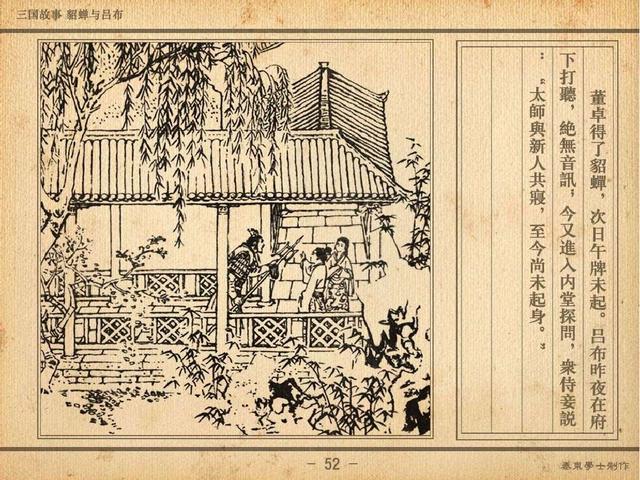 三国故事 貂蟬与呂布
董卓得了貂蟬，次日午牌未起。呂布昨夜在府
下打聽，絶無音訊，今又進入内堂探問，衆侍妾説
：“太師與新人共寢，至今尚未起身。”
- 52 -
惠東學士制作